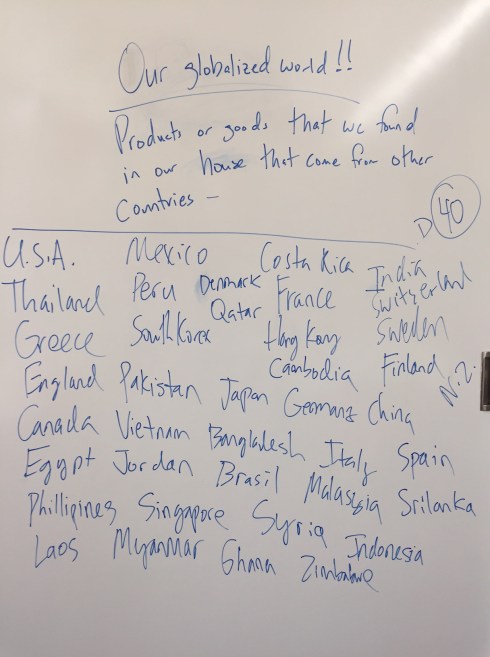 Our globalized world!!
Products or goods that we found
in our house that come from other
Countries -
40
U.S.A. Mexico Costa Rica India
Thailand Peru Denmark France Switzerland
Qatar
Greece South Korea Hong Kong Sweden
England Pakistan Japan Cambodia Finland N.Z.
Germany China
Canada Vietnam Bangladesh Italy Spain
Egypt Jordan Brasil Malaysia Srilanka
Phillipines Singapore Syria Indonesia
Laos Myanmar Ghana Zimbabwe